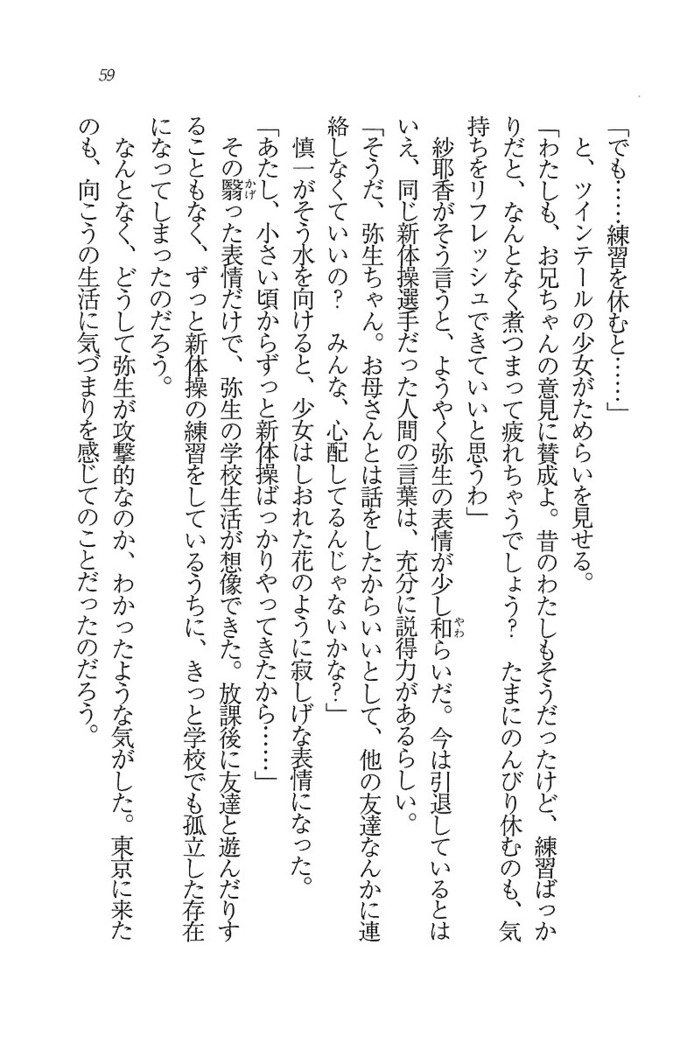 59
「でも……練習を休むと……」
と、ツインテールの少女がためらいを見せる。
「わたしも、お兄ちゃんの意見に賛成よ。昔のわたしもそうだったけど、練習ばっか
りだと、なんとなく煮つまって疲れちゃうでしょう？　たまにのんびり休むのも、気
持ちをリフレッシュできていいと思うわ」
紗耶香がそう言うと、ようやく弥生の表情が少し和らいだ。今は引退しているとは
やわ
いえ、同じ新体操選手だった人間の言葉は、充分に説得力があるらしい。
「そうだ、弥生ちゃん。お母さんとは話をしたからいいとして、他の友達なんかに連
絡しなくていいの？　みんな、心配してるんじゃないかな？」
慎一がそう水を向けると、少女はしおれた花のように寂しげな表情になった。
「あたし、小さい頃からずっと新体操ばっかりやってきたから……」
その翳った表情だけで、弥生の学校生活が想像できた。放課後に友達と遊んだりす
かげ
ることもなく、ずっと新体操の練習をしているうちに、きっと学校でも孤立した存在
になってしまったのだろう。
なんとなく、どうして弥生が攻撃的なのか、わかったような気がした。東京に来た
のも、向こうの生活に気づまりを感じてのことだったのだろう。